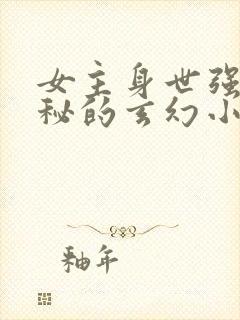 女主身世强
秘的玄幻小
釉年